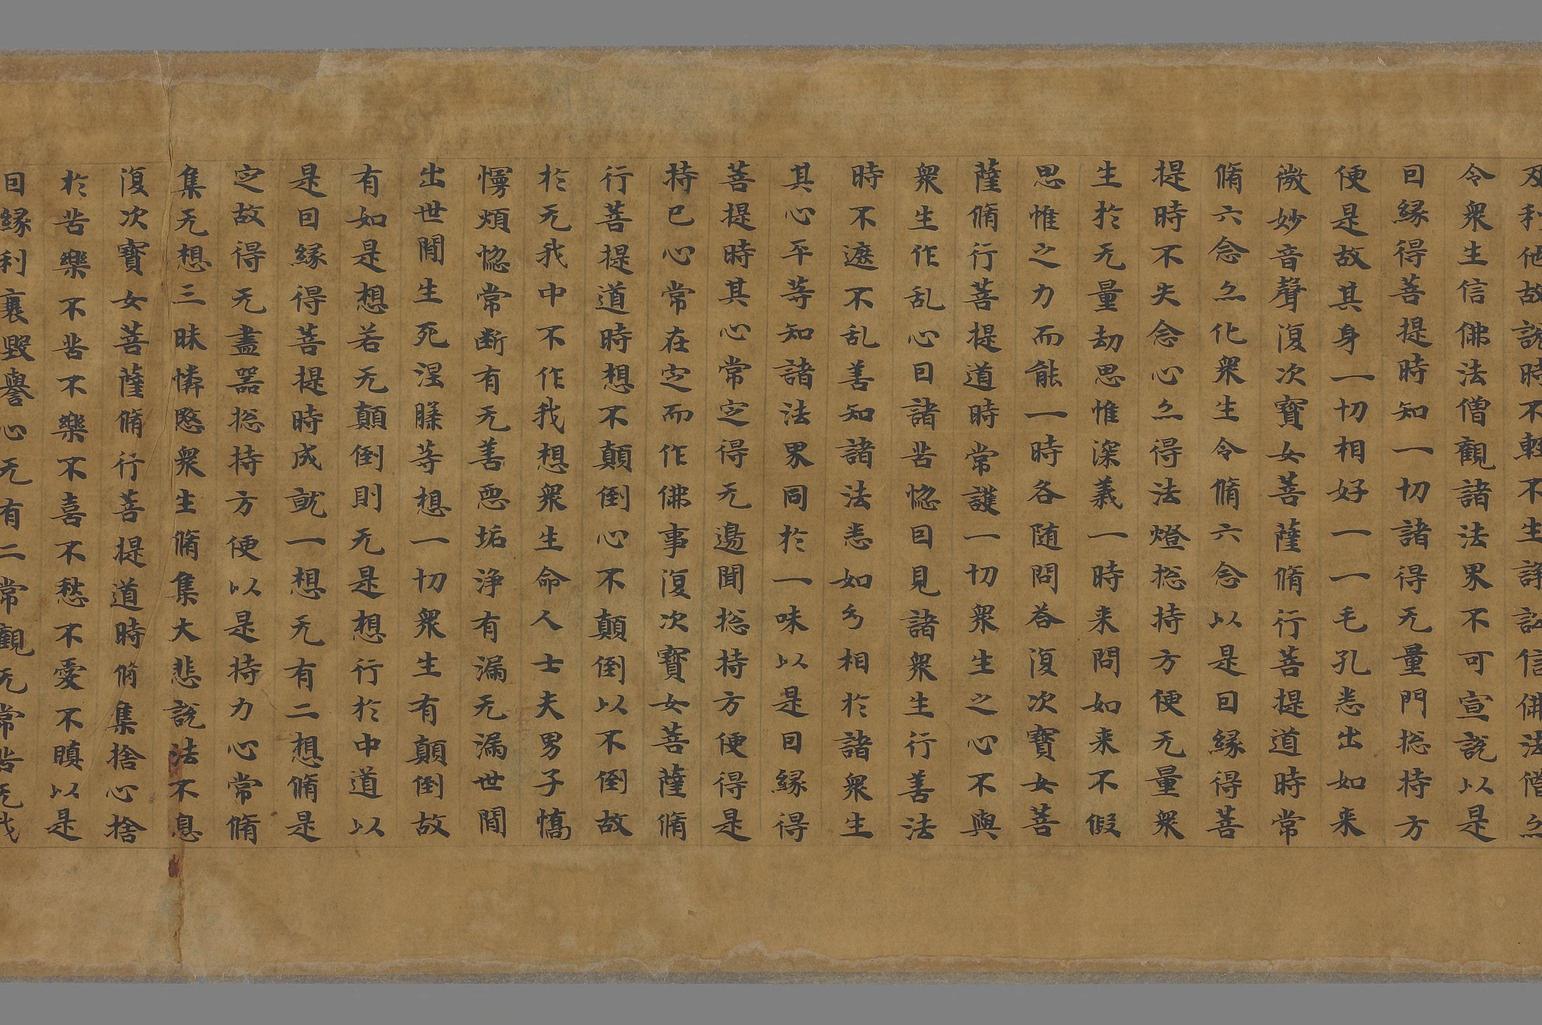 及利他故說時不輕不生諍訟信佛法僧亦
令衆生信佛法僧觀諸法界不可宣說以是
因緣得菩提時知一切諸得无量門捴持方
便是故其身一切相好一一毛孔悉出如来
微妙音聲復次寶女菩薩脩行菩提道時常
脩六念亦化衆生令脩六念以是因緣得菩
提時不失念心亦得法燈捴持方便无量衆
生於无量劫思惟深義一時来問如来不假
思惟之力而能一時各随問荅復次寶女菩
薩脩行菩提道時常護一切衆生之心不與
衆生作乱心因諸苦惱因見諸衆生行善法
時不遮不乱善知諸法悉如幻相於諸衆生
其心平等知諸法界同於一味以是因緣得
菩提時其心常定得无邊聞捴持方便得是
持已心常在定而作佛事復次寶女菩薩脩
行菩提道時想不顛倒心不顛倒以不倒故
於无我中不作我想衆生命人士夫男子憍
慢煩惱常断有无善惡垢淨有漏无漏世間
出世間生死涅槃等想一切衆生有顛倒故
有如是想若无顛倒則无是想行於中道以
是因緣得菩提時成就一想无有二想脩是
定故得无盡器捴持方便以是持力心常脩
集无想三昧憐愍衆生脩集大悲說法不息
復次寶女菩薩脩行菩提道時脩集捨心捨
於苦樂不苦不樂不喜不愁不愛不瞋以是
因緣利衰毀譽心无有二常觀无常苦无我